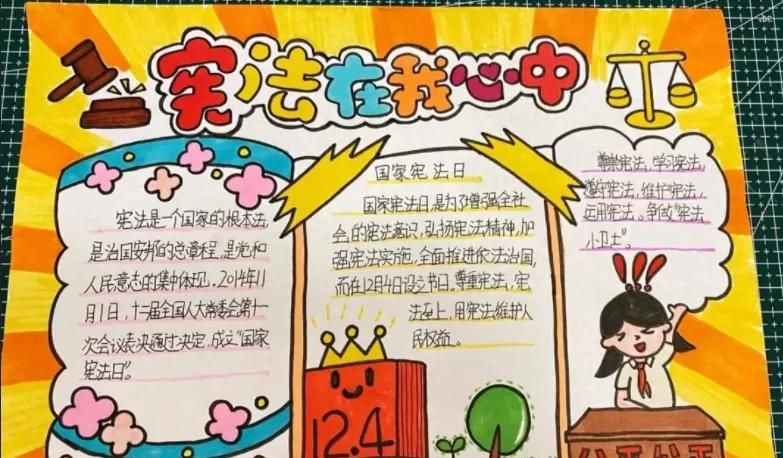 宪法在我心中
宪法是一个国家的根本法,
是治国安邦的总章程,是党和
人民意志的集中体现。2014年11
月1日,十二届全国人大常委会第十一
次会议表决通过决定,成立“国家
宪法日”。
国家宪法日
国家宪法日,是为了增强全社
会的宪法意识,弘扬宪法精神,加
强宪法实施,全面推进依法治国,
而在12月4日设立节日。尊重宪法,宪
法至上,用宪法维护人
民权益。
12.4
尊崇宪法,学习宪法,
遵守宪法,维护宪法,
运用宪法。争做“宪法
小卫士”。